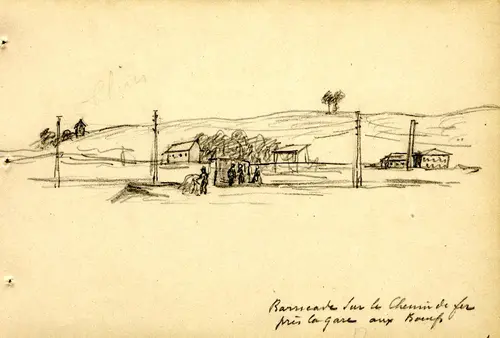 Barricade sur le Chemin de fer
près la gare aux Bœufs